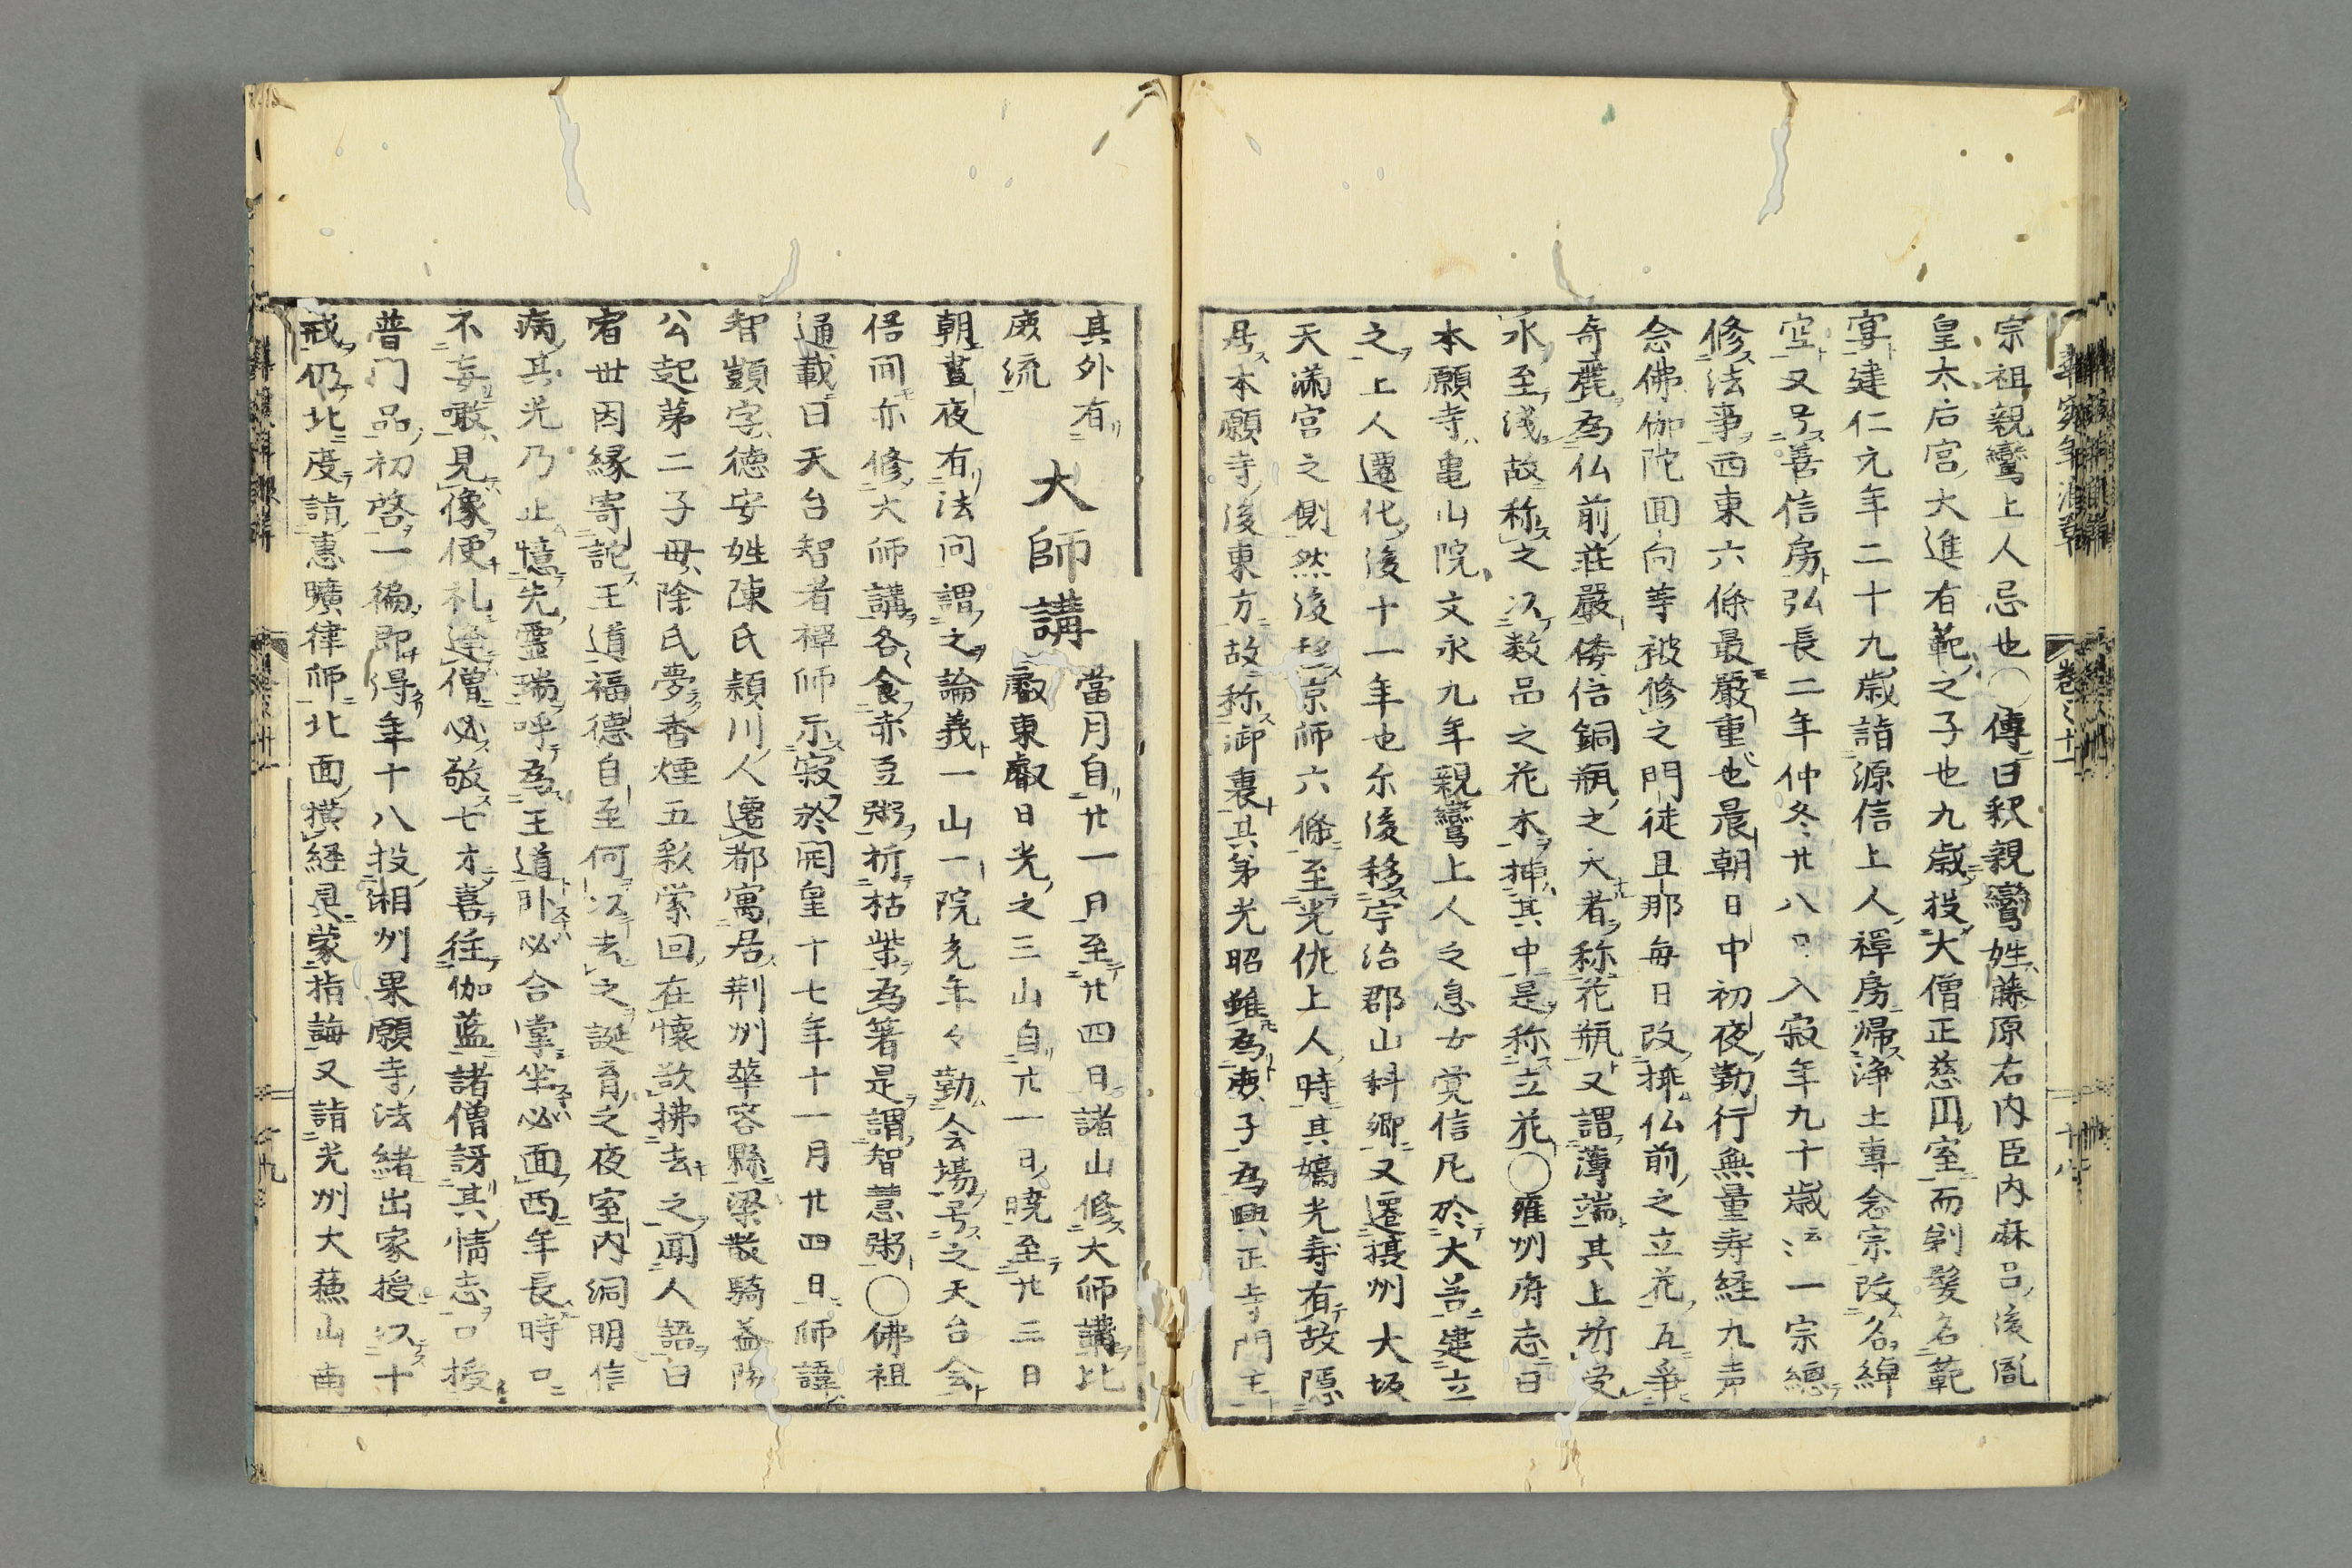 宗祖親鸞上人忌也○傳曰釈親鸞姓藤原右内臣内麻呂後胤
皇太后宮大進有範之子也九歳投大僧正慈円室而剃髮名範
宴建仁元年二十九歳詣源信上人禪房帰浄土專念宗改名綽
空又号善信房弘長二年仲冬廿八日入寂年九十歳云云一宗總
修法事西東六條最嚴重也晨朝日中初夜勤行無量寿経九声
念佛伽陀回向等被修之門徒且那毎日改排仏前之立花互爭
奇麗為仏前荘嚴倚信銅瓶之大者称花瓶又謂薄端其上所受
水至浅故称之以数品之花木挿其中是称立花○雍州府志曰
本願寺亀山院文永九年親鸞上人之息女覚信尼於大谷建立
之上人遷化後十一年也尓後移宇治郡山科郷又遷摂州大坂
天滿宮之側然後移京師六條至光佐上人時其嫡光寿有故隠
居本願寺後東方故称御裏其弟光昭雖為庶子為興正寺門主
其外有
庶流
大師講
當月自廿一日至廿四日諸山修大師講比
叡東叡日光之三山自廿一日暁至廿三日
朝晝夜有法問謂之論義一山一院充年々勤会場号之天台会
俗間亦修大師講各食赤豆粥折枯柴為箸是謂智慧粥○佛祖
通載曰天台智者禪師示寂於開皇十七年十一月廿四日師諱
智顗字德安姓陳氏頴川人遷都寓居荆州華容縣梁散騎益陽
公起第二子母除氏夢香煙五彩縈回在懷欲拂去之聞人語曰
宿世因縁寄託王道福德自至何以去之誕育之夜室内洞明信
病其光乃止憶先靈瑞呼為王道卧必合掌坐必面西年長時口
不妄噉見像便礼逢僧必敬七才喜往伽藍諸僧訝其情志口授
普門品初啓一徧即得年十八投湘州果願寺法緒出家授以十
戒仍北度詣惠曠律師北面横経具蒙指誨又詣光州大蘓山南